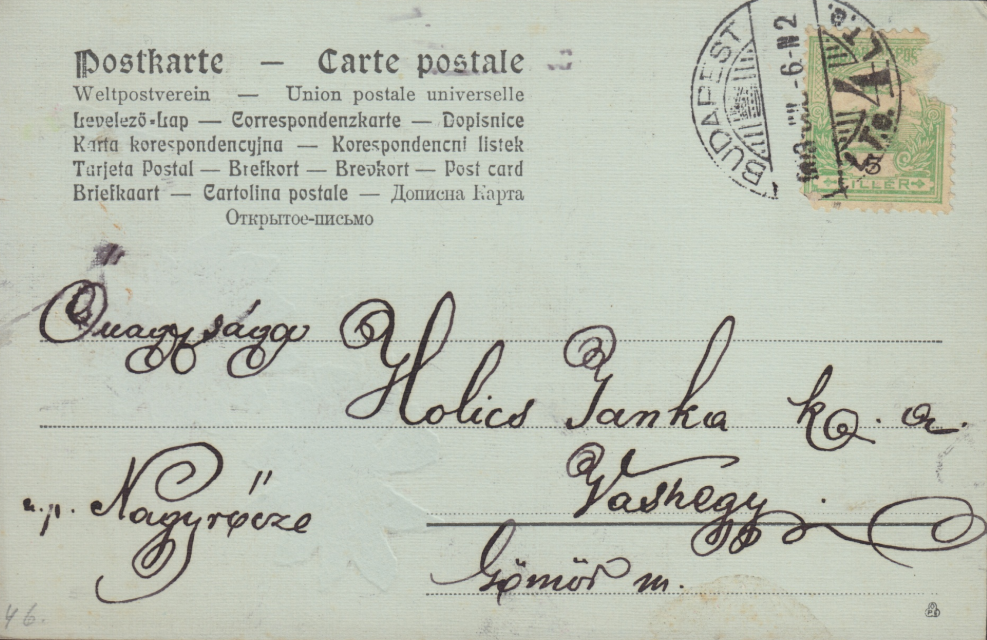 Postkarte — Carte postale
Weltpostverein — Union postale universelle
Levelező-Lap — Correspondenzkarte — Dopisnice
Karta korespondencyjna — Korespondencni listek
Tarjeta Postal — Brefkort — Brevkort — Post card
Briefkaart — Cartolina postale — Дописна Карта
Открытое-письмо
BUDAPEST
6-N2
5
FILLER
Őnagysága
Holics Janka k. a.
Vashegy
u.p. Nagyrőcze
Gömör m.
46.